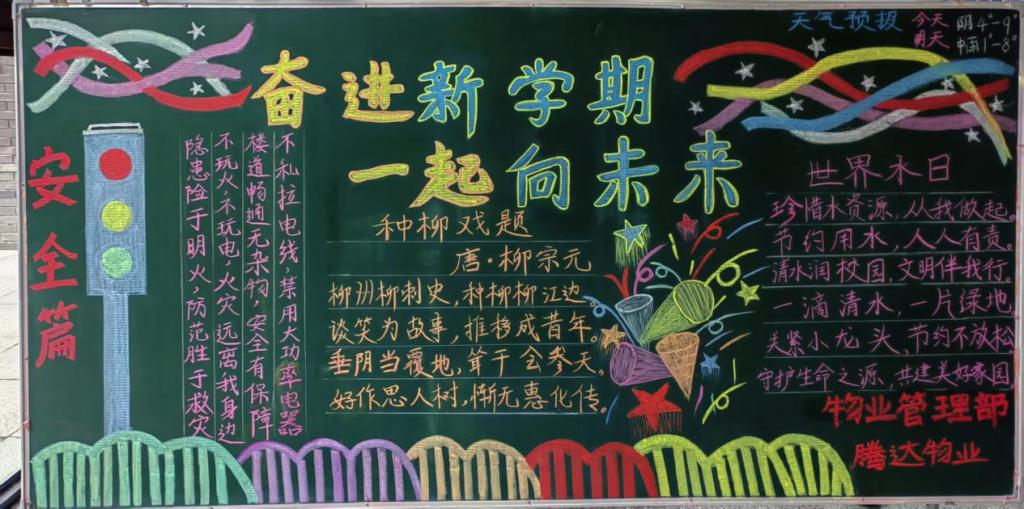 天气预报 今天 阴4°-9°
明天 中雨1°-8°
奋进新学期
一起向未来
安全篇
不私拉电线,禁用大功率电器
楼道畅通无杂物,安全有保障
不玩火不玩电,火灾远离我身边
隐患险于明火,防范胜于救灾
种柳戏题
唐·柳宗元
柳州柳刺史,种柳柳江边。
谈笑为故事,推移成昔年。
垂阴当覆地,耸干会参天。
好作思人树,惭无惠化传。
世界水日
珍惜水资源,从我做起。
节约用水,人人有责。
清水润校园,文明伴我行。
一滴清水,一片绿地
关紧小龙头、节约不放松
守护生命之源,共建美好家园
物业管理部
腾达物业